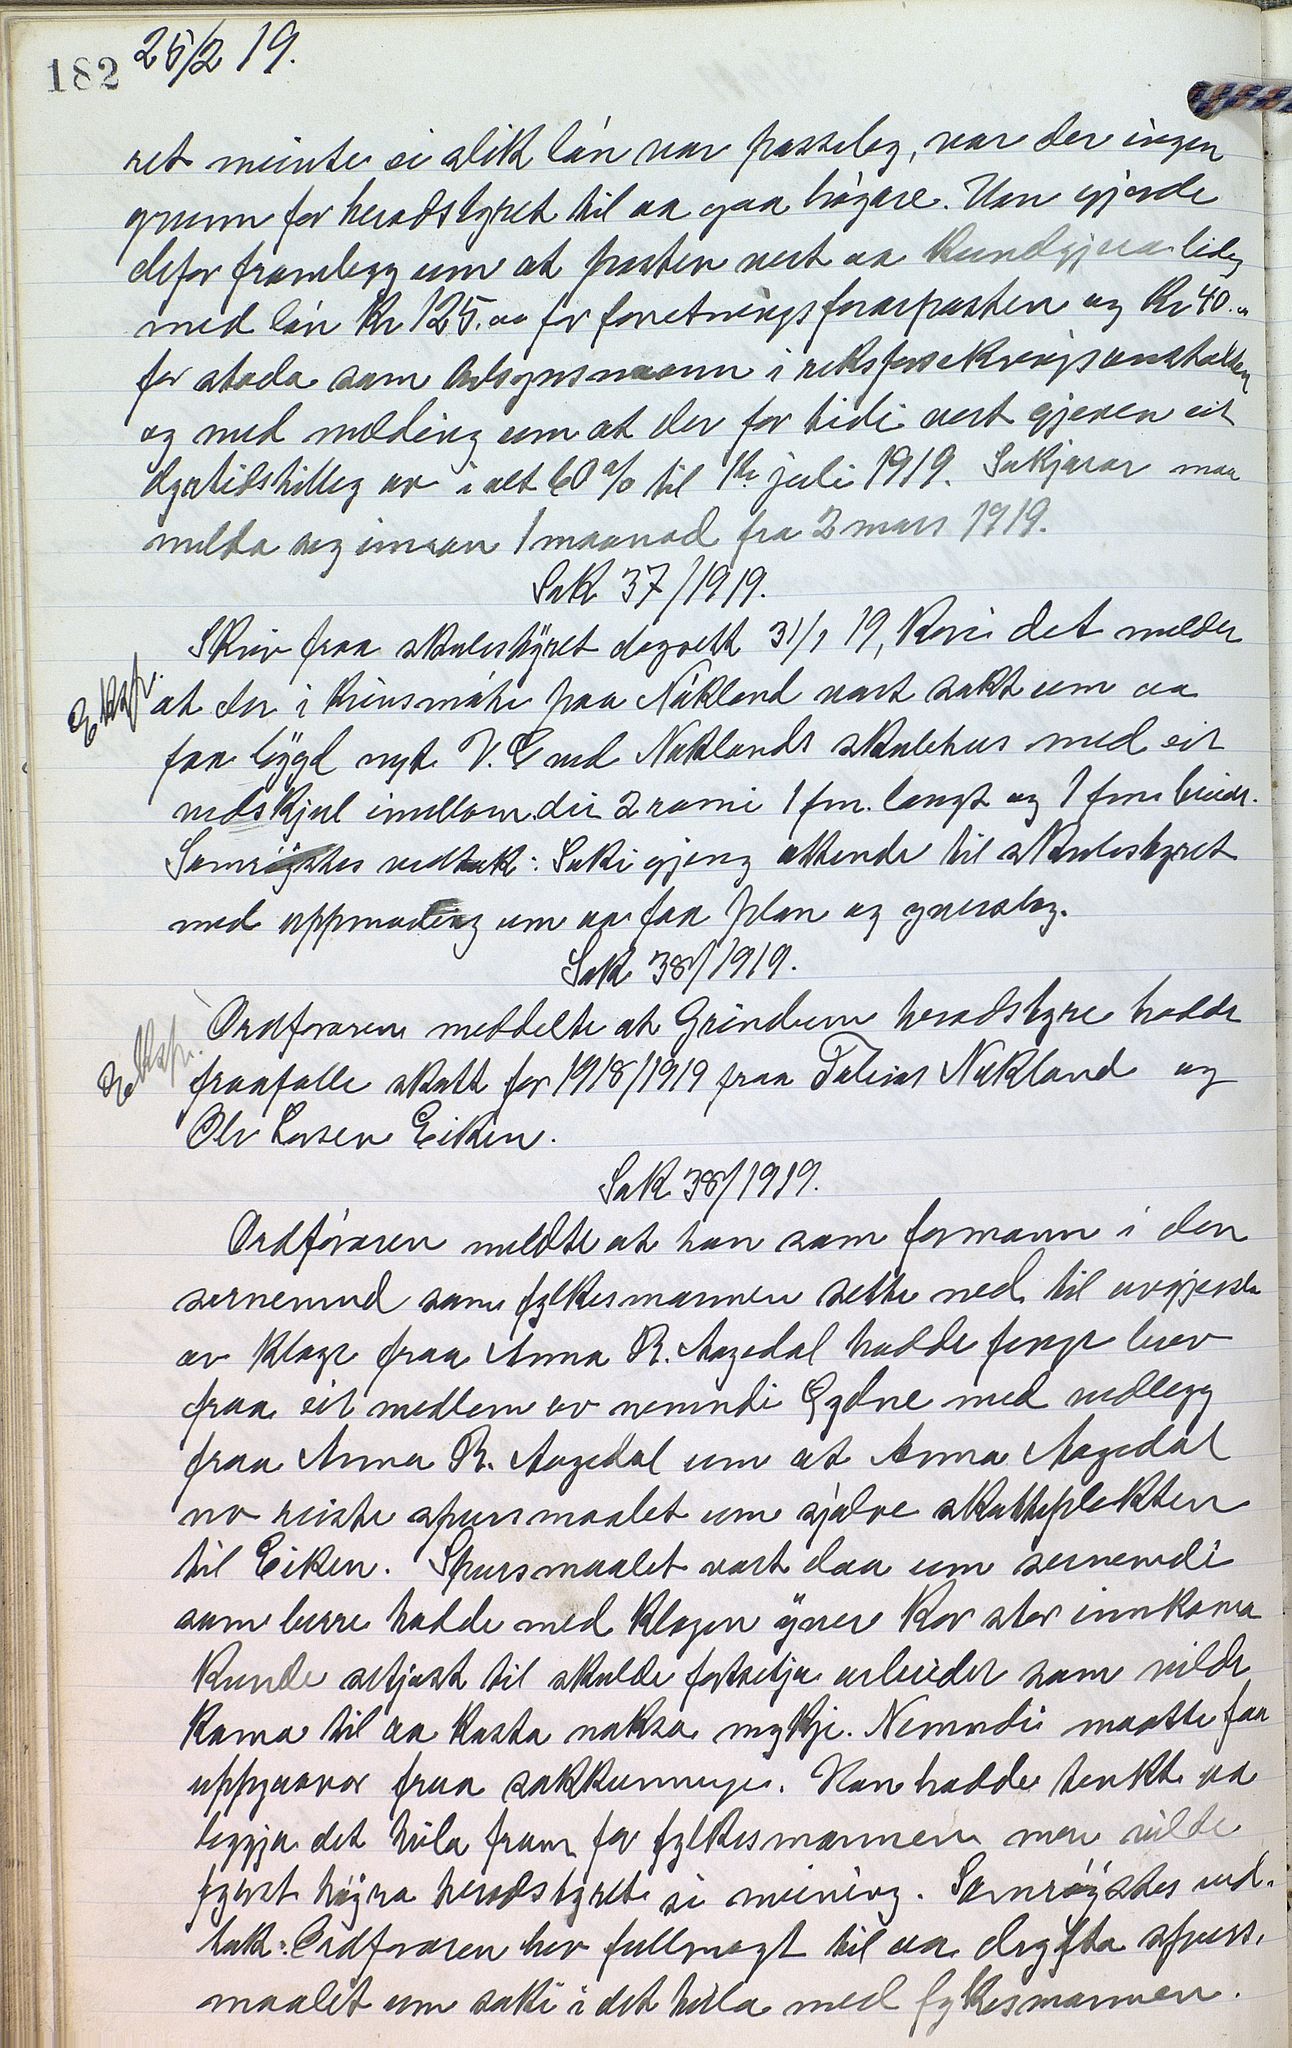 182 25/2 19.
ret meinte ei slik lön var passeleg, var der ingen
grunn for heradstyret til aa gaa högare. Han gjorde
difor framlegg um at posten vert aa kundgjera ledig
med lön kr 125.00 for forretningsförarposten og kr 40.00
for stoda som tilsynsmann i riksforsekringsanstalten
og med melding um at der for tidi vert gjeven eit
dyrtidstillegg av i alt 60 % til 1ste juli 1919. Sökjarar maa
melda seg innan 1 maanad fra 2 mars 1919.
Sak 37/1919.
Skriv fraa skulestyret dagsett 31/1 19, kori det melder
Ekspr.
at der i krinsmöte paa Nökland vart sakt um aa
faa bygd nytt V. C ved Nöklands skulehus med eit
vedskjul imellom dei 2 romi 1 fm. langt og 1 fm. breidt.
Samröystes vedtak: Saki gjeng attende til skulestyret
med uppmoding um aa faa plan og yverslag.
Sak 38/1919.
Ekspr.
Ordföraren meddelte at Grindum heradstyre hadde
fraafalle skatt for 1918/1919 fraa Tobias Nökland og
Ole Larsen Eiken.
Sak 38/1919.
Ordföraren meldte at han som formann i den
sernemnd som fylkesmannen sette ned til avgjerda
av klage fraa Anna R. Aagedal hadde fenge brev
fraa eit medlem av nemndi Eydne med vedlegg
fraa Anna R. Aagedal um at Anna Aagedal
no reiste spursmaalet um sjölve skatteplikten
til Eiken. Spursmaalet vart daa um sernemdi
som berre hadde med klagen yver kor stor innkoma
kunde setjast til skulde fortsetja arbeidet som vilde
koma til aa kosta nokso mykje. Nemndi maatte faa
uppgaavor fraa sakkunnuge. Han hadde tenkt aa
leggja det heila fram for fylkesmannen men vilde
fyrst höyra heradstyret si meining. Samröystes ved-
tak: Ordföraren hev fullmagt til aa dryfta spurs-
maalet um saki i det heila med fylkesmannen.